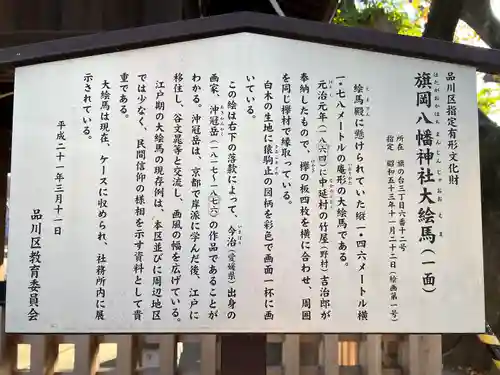 品川区指定有形文化財
はたがおかはちまんじんじゃおおえま
旗岡八幡神社大絵馬(一面)
所在 旗の台三丁目六番十二号
指定 昭和五十三年十一月二十二日(絵画第一号)
えまでん
絵馬殿に懸けられていた縦一・四六メートル横
一・七八メートルの庵形の大絵馬である。
元治元年(一八六四)に中延村の竹屋(野村)吉治郎が
奉納したもので、欅の板四枚を横に合わせ、周囲
を同じ欅材で縁取っている。
白木の生地に猿駒止の図柄を彩色で画面一杯に画
いている。
この絵は右下の落款によって、今治(愛媛県)出身の
画家、沖冠岳(一八一七-一八七六)の作品であることが
わかる。沖冠岳は、京都で岸派に学んだ後、江戸に
移住し、谷文晁等と交流し、画風の幅を広げている。
江戸期の大絵馬の現存例は、本区並びに周辺地区
では少なく、民間信仰の様相を示す資料として貴
重である。
大絵馬は現在、ケースに収められ、社務所内に展
示されている。
平成二十一年三月十一日
品川区教育委員会